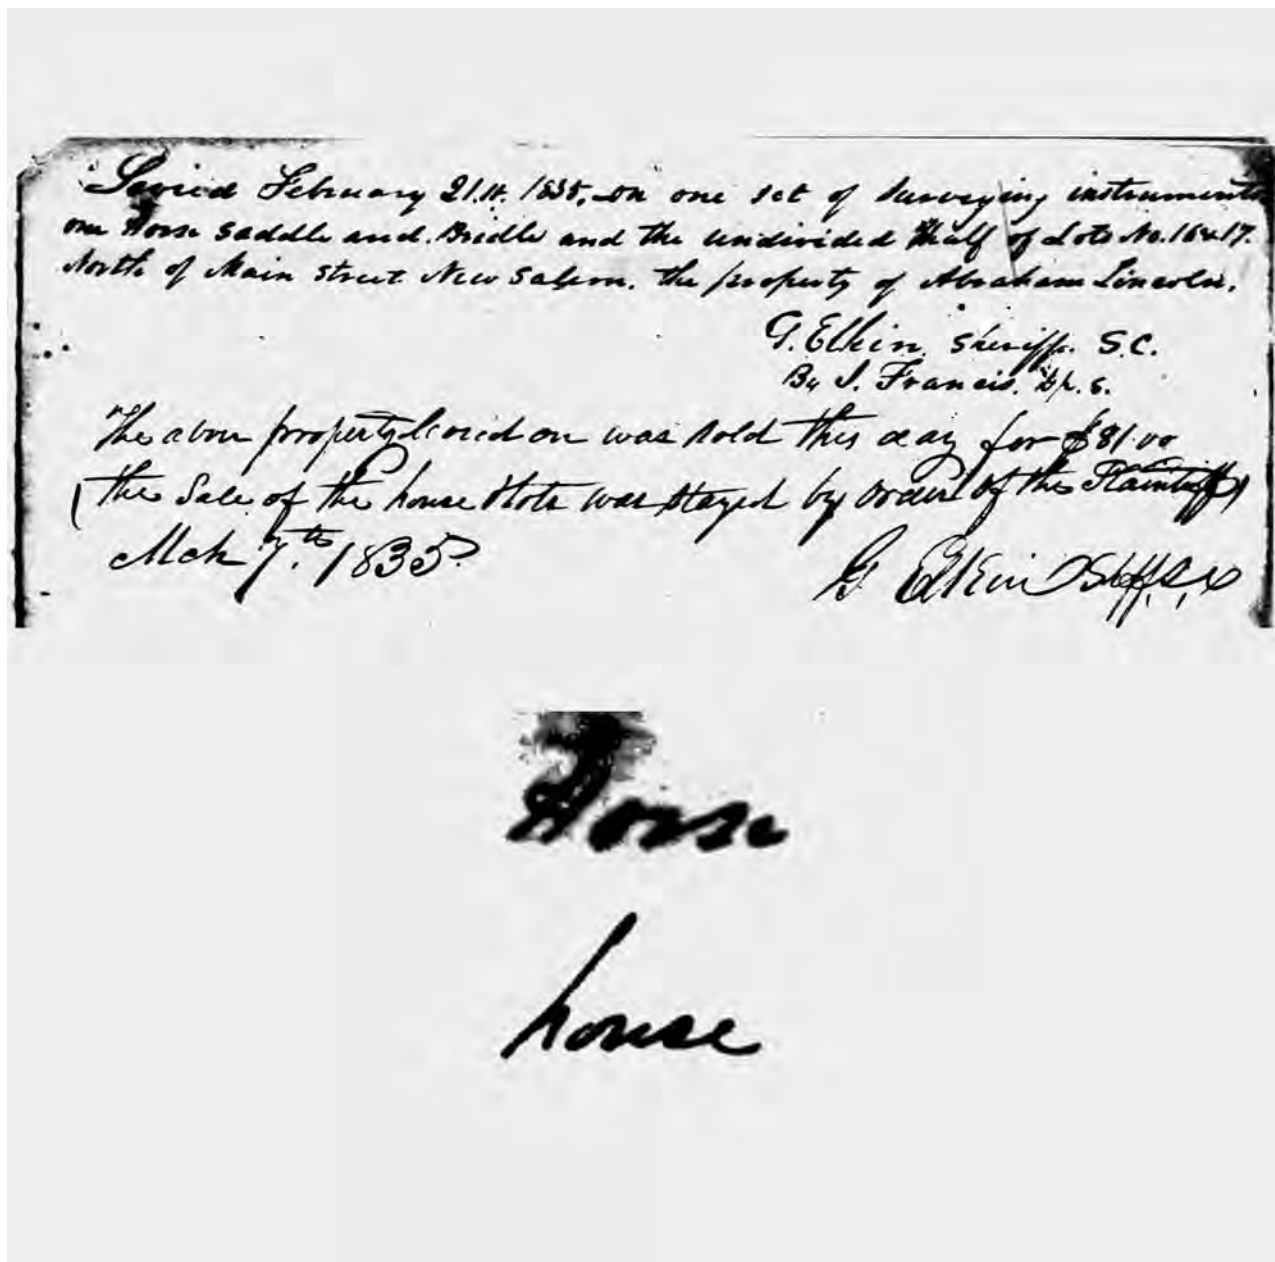 Levied February 21.st. 1835, on one set of Surveying instruments
one Horse saddle and Bridle and the undivided half of Lots No. 16 & 17.
North of Main Street New Salem. the property of Abraham Lincoln.
G. Elkin. Sheriff. S.C.
By J. Francis. Dp. S.
The above property levied on was sold this day for $81.00
(the Sale of the house & lots was stayed by order of the Plaintiff)
Mch 7.th 1835
G Elkin Shff. S,
Horse
house